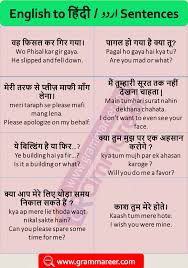 English to हिंदी / اردو Sentences
वह फिसल कर गिर गया।
Wo Phisal kar gir gaya.
He slipped and fell down.
पागल हो गया है क्या तू?
Pagal ho gaya hai kya tu?
Are you mad or what?
मेरी तरफ से प्लीज़ माफी माँग लेना।
meri taraph se please mafi mang lena.
Please apologize on my behalf.
मैं तुम्हारी सूरत तक नहीं देखना चाहता।
Main tumhari surat tak nahin dekhana chahata.
I don't want to even see your face.
ये बिल्डिंग है या फिर..
Ye building hai ya fir..
Is it a building or what?
क्या तुम मुझ पर एक अहसान करोगे ?
kya tum mujh par ek ahasan karoge ?
Can you do me a favor?
क्या आप मेरे लिए थोड़ा समय निकाल सकते हैं ?
kya ap mere lie thoda samay nikal sakte hain ?
Can you please spare some time for me?
काश तुम मेरे होते।
Kaash tum mere hote.
I wish you were mine.
www.grammareer.com